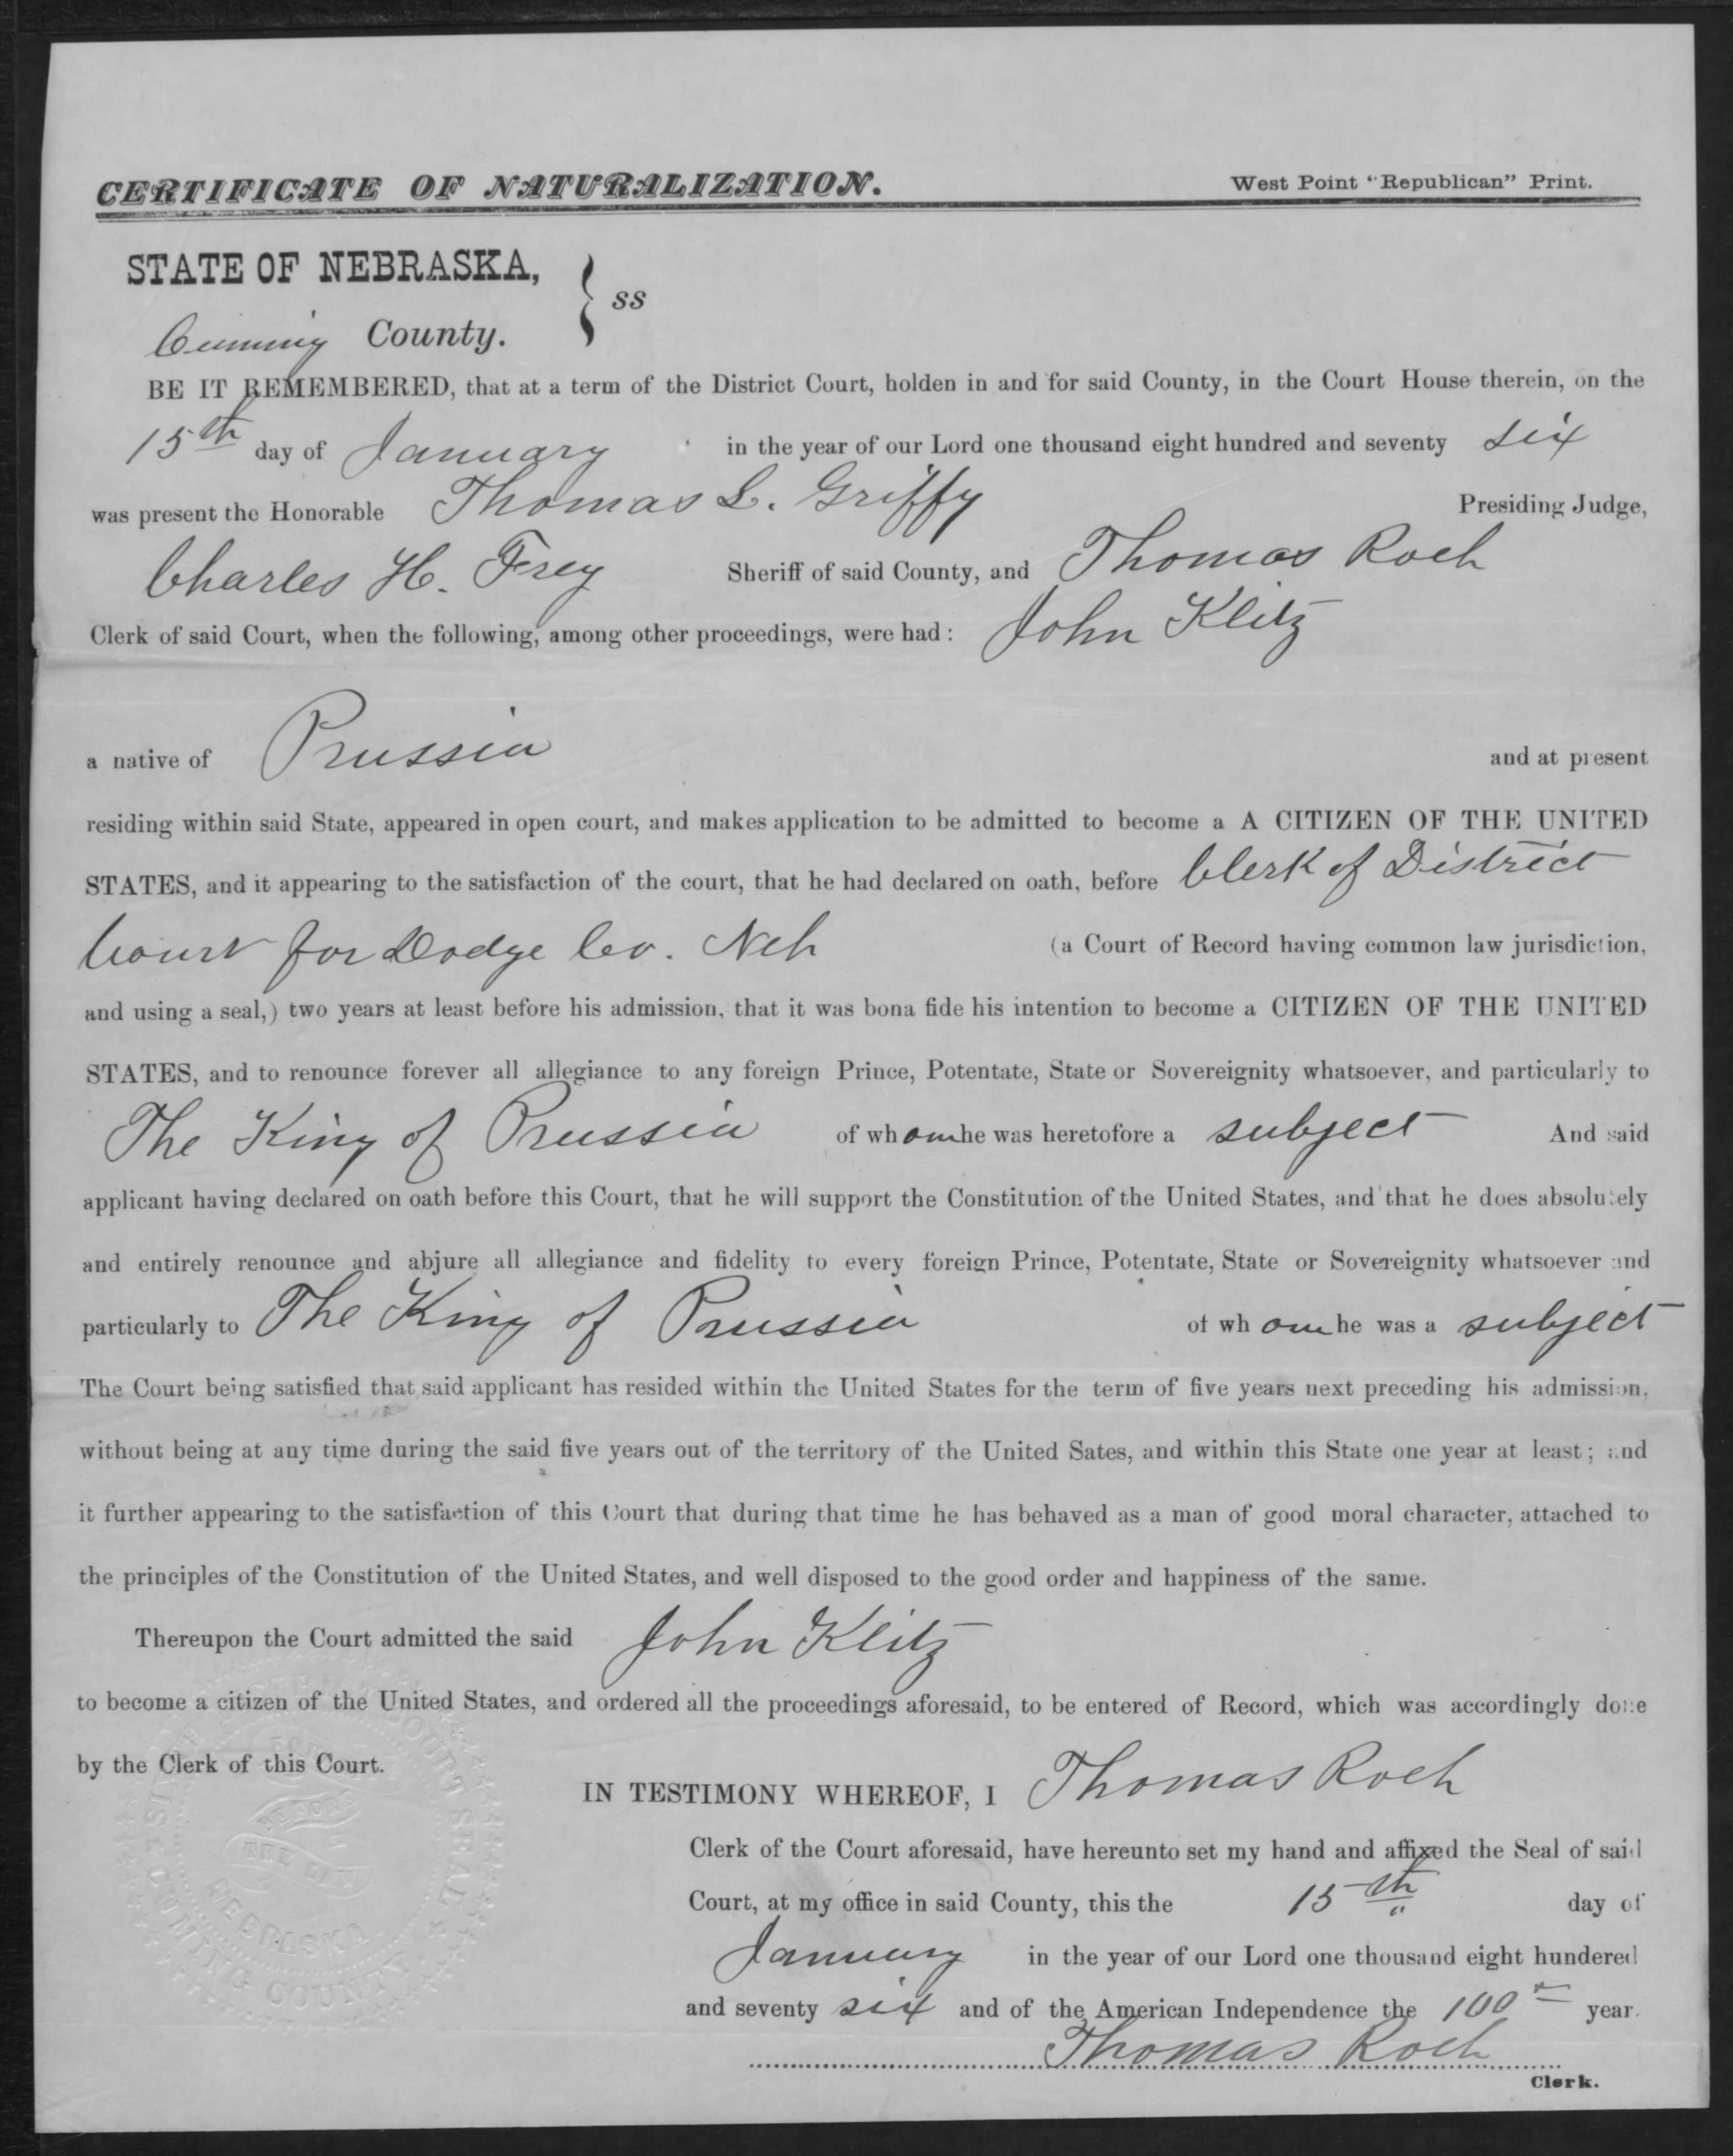 CERTIFICATE OF NATURALIZATION. West Point "Republican" Print.
STATE OF NEBRASKA,
Cuming County. } ss
BE IT REMEMBERED, that at a term of the District Court, holden in and for said County, in the Court House therein, on the
15th day of January in the year of our Lord one thousand eight hundred and seventy six
was present the Honorable Thomas L. Griffy Presiding Judge,
Charles H. Frey Sheriff of said County, and Thomas Roch
Clerk of said Court, when the following, among other proceedings, were had: John Klitz
a native of Prussia and at present
residing within said State, appeared in open court, and makes application to be admitted to become a A CITIZEN OF THE UNITED
STATES, and it appearing to the satisfaction of the court, that he had declared on oath, before Clerk of District
Court for Dodge Co. Neb (a Court of Record having common law jurisdiction,
and using a seal,) two years at least before his admission, that it was bona fide his intention to become a CITIZEN OF THE UNITED
STATES, and to renounce forever all allegiance to any foreign Prince, Potentate, State or Sovereignity whatsoever, and particularly to
The King of Prussia of whom he was heretofore a subject And said
applicant having declared on oath before this Court, that he will support the Constitution of the United States, and that he does absolutely
and entirely renounce and abjure all allegiance and fidelity to every foreign Prince, Potentate, State or Sovereignity whatsoever and
particularly to The King of Prussia of whom he was a subject
The Court being satisfied that said applicant has resided within the United States for the term of five years next preceding his admission,
without being at any time during the said five years out of the territory of the United Sates, and within this State one year at least; and
it further appearing to the satisfaction of this Court that during that time he has behaved as a man of good moral character, attached to
the principles of the Constitution of the United States, and well disposed to the good order and happiness of the same.
Thereupon the Court admitted the said John Klitz
to become a citizen of the United States, and ordered all the proceedings aforesaid, to be entered of Record, which was accordingly done
by the Clerk of this Court.
IN TESTIMONY WHEREOF, I Thomas Roch
Clerk of the Court aforesaid, have hereunto set my hand and affixed the Seal of said
Court, at my office in said County, this the 15th day of
January in the year of our Lord one thousand eight hundered
and seventy six and of the American Independence the 100th year.
Thomas Roch
Clerk.
COURT SEAL
NEBRASKA
CUMING COUNTY